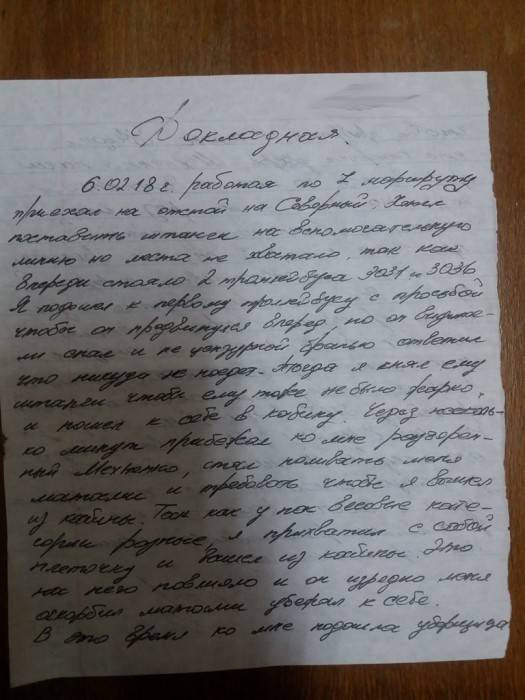 Докладная.
6.02.18 г. работая по 7 маршруту
приехал на отстой на Северный. Хотел
поставить штанги на вспомогательную
линию но места не хватало, так как
впереди стояло 2 троллейбуса 3031 и 3036
Я подошел к первому троллейбусу с просьбой
чтобы он продвинулся вперед, но он видимо
спал и не цензурной бранью ответил
что никуда не поедет. Тогда я снял ему
штанги чтобы ему тоже не было жарко,
и пошел к себе в кабину. Через несколь-
ко минут прибежал ко мне разъярен-
ный, стал поливать меня
матами и требовать чтобы я вышел
из кабины. Так как у нас весовые кате-
гории разные, я прихватил с собой
плеточку и вышел из кабины. Это
на него повлияло и он изрядно меня
оскорбил матами убежал к себе.
В это время ко мне подошла уборщица